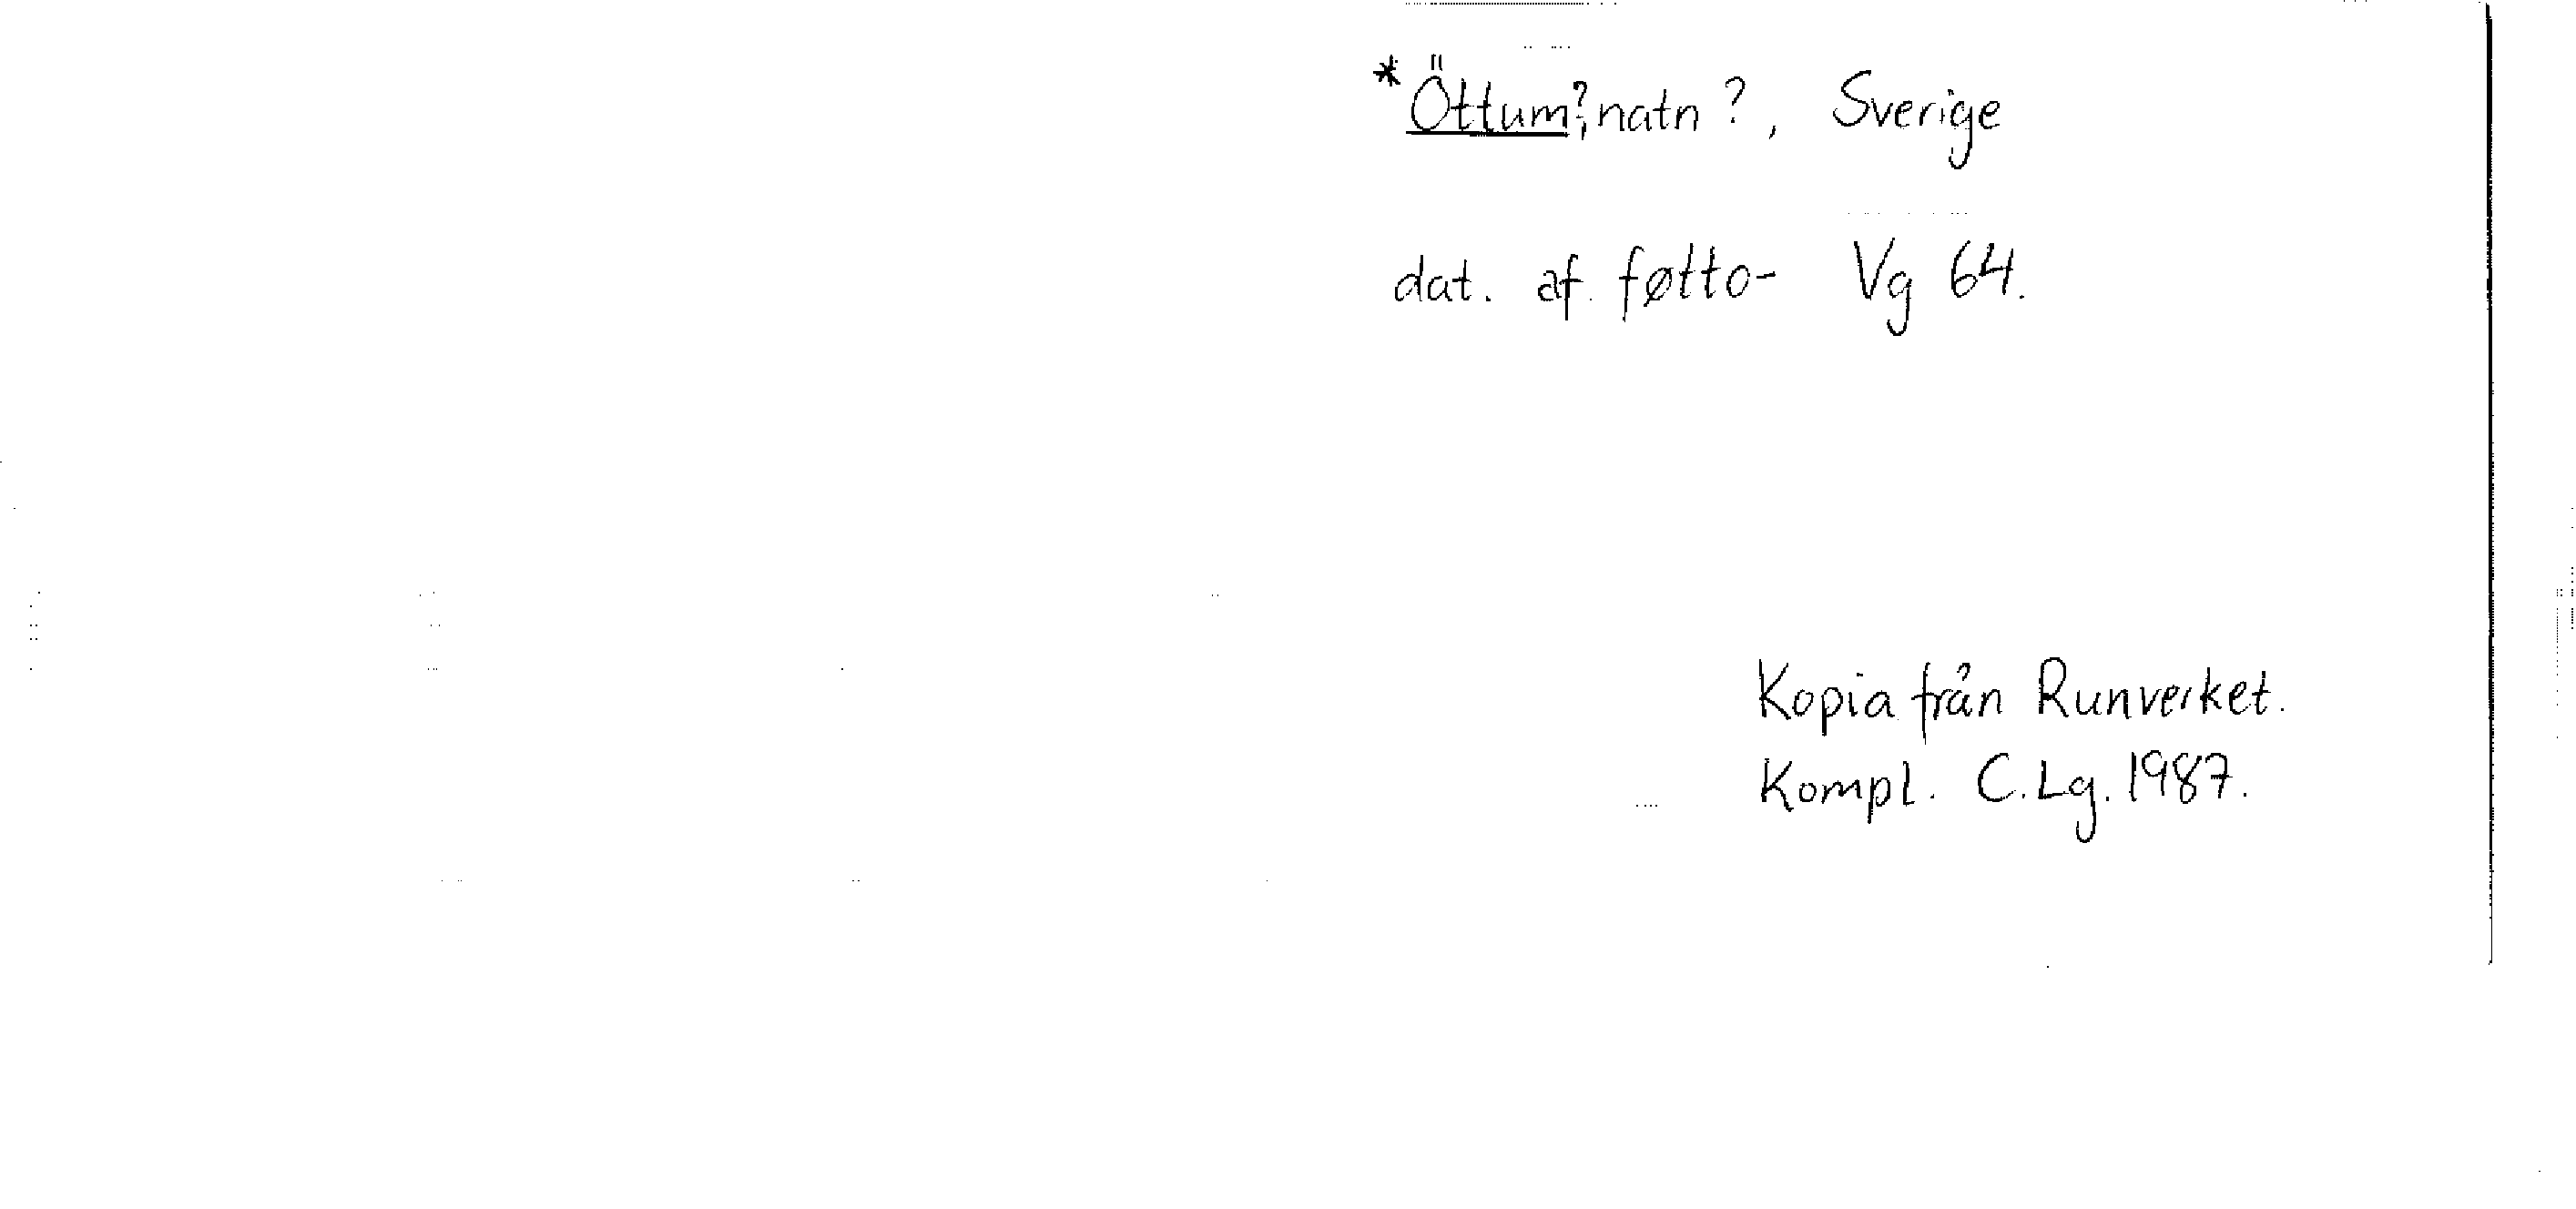 *Öttum?, natn?, Sverige
dat. af føtto- Vg 64.
Kopia från Runverket.
Kompl. C.Lg. 1987.